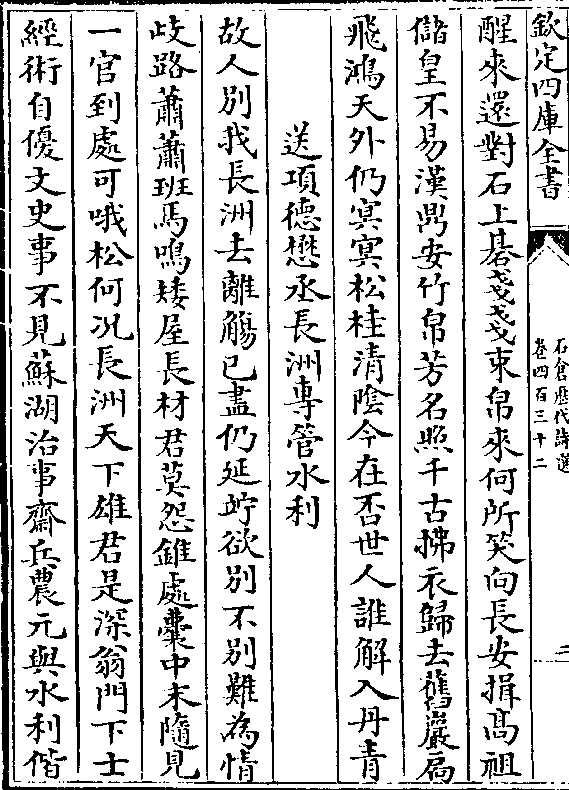 欽定四庫全書
石倉歷代詩選
卷四百三十二
二
醒來還對石上棊戔戔束帛來何所笑向長安揖高祖
儲皇不易漢鼎安竹帛芳名照千古拂衣歸去舊巖扃
飛鴻天外仍冥冥松桂清陰今在否世人誰解入丹青
送項德懋丞長洲專管水利
故人別我長洲去離觴已盡仍延竚欲別不別難為情
歧路蕭蕭班馬鳴矮屋長材君莫怨錐處囊中未隨見
一官到處可哦松何況長洲天下雄君是深翁門下士
經術自優文史事不見蘇湖治事齋兵農元與水利偕